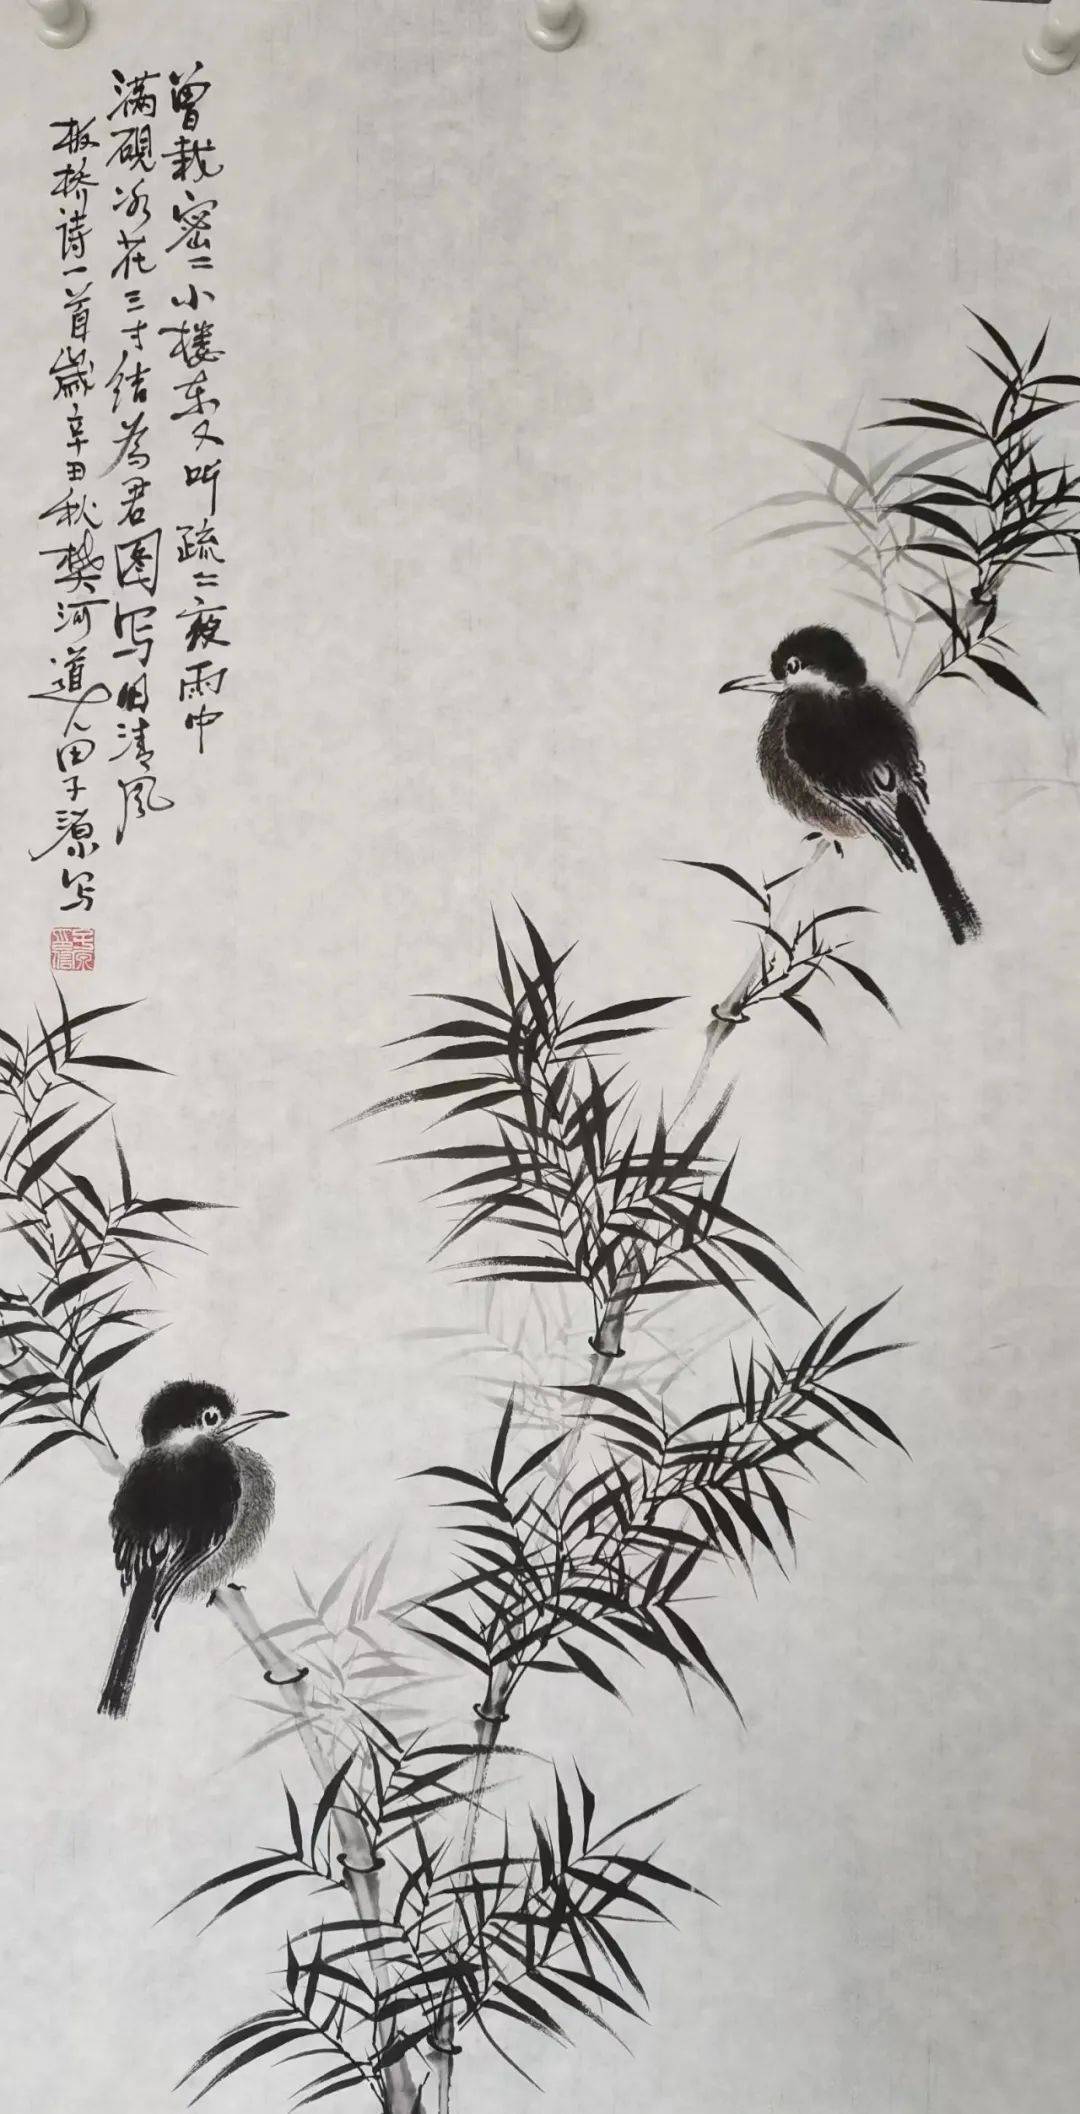 曾栽密〻小楼东又听疏〻夜雨中
满砚冰花三寸结为君图写旧清风
板桥诗一首歲辛丑秋樊河道人田子源写